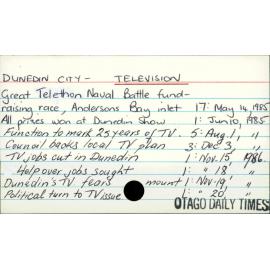 DUNEDIN CITY - TELEVISION
Great Telethon Naval Battle fund-
raising race, Andersons Bay inlet 17: May 14, 1985
All prizes won at Dunedin Show 1: Jun 10, 1985
Function to mark 25 years of TV. 5: Aug 1, "
Council backs local TV plan 3: Dec 3, "
TV jobs cut in Dunedin 1: Nov. 15, 1986.
Help over jobs sought 1: " 18' "
Dunedin's TV fears mount 1: Nov 19' "
Political turn to TV issue 1: " 20, "
OTAGO DAILY TIMES